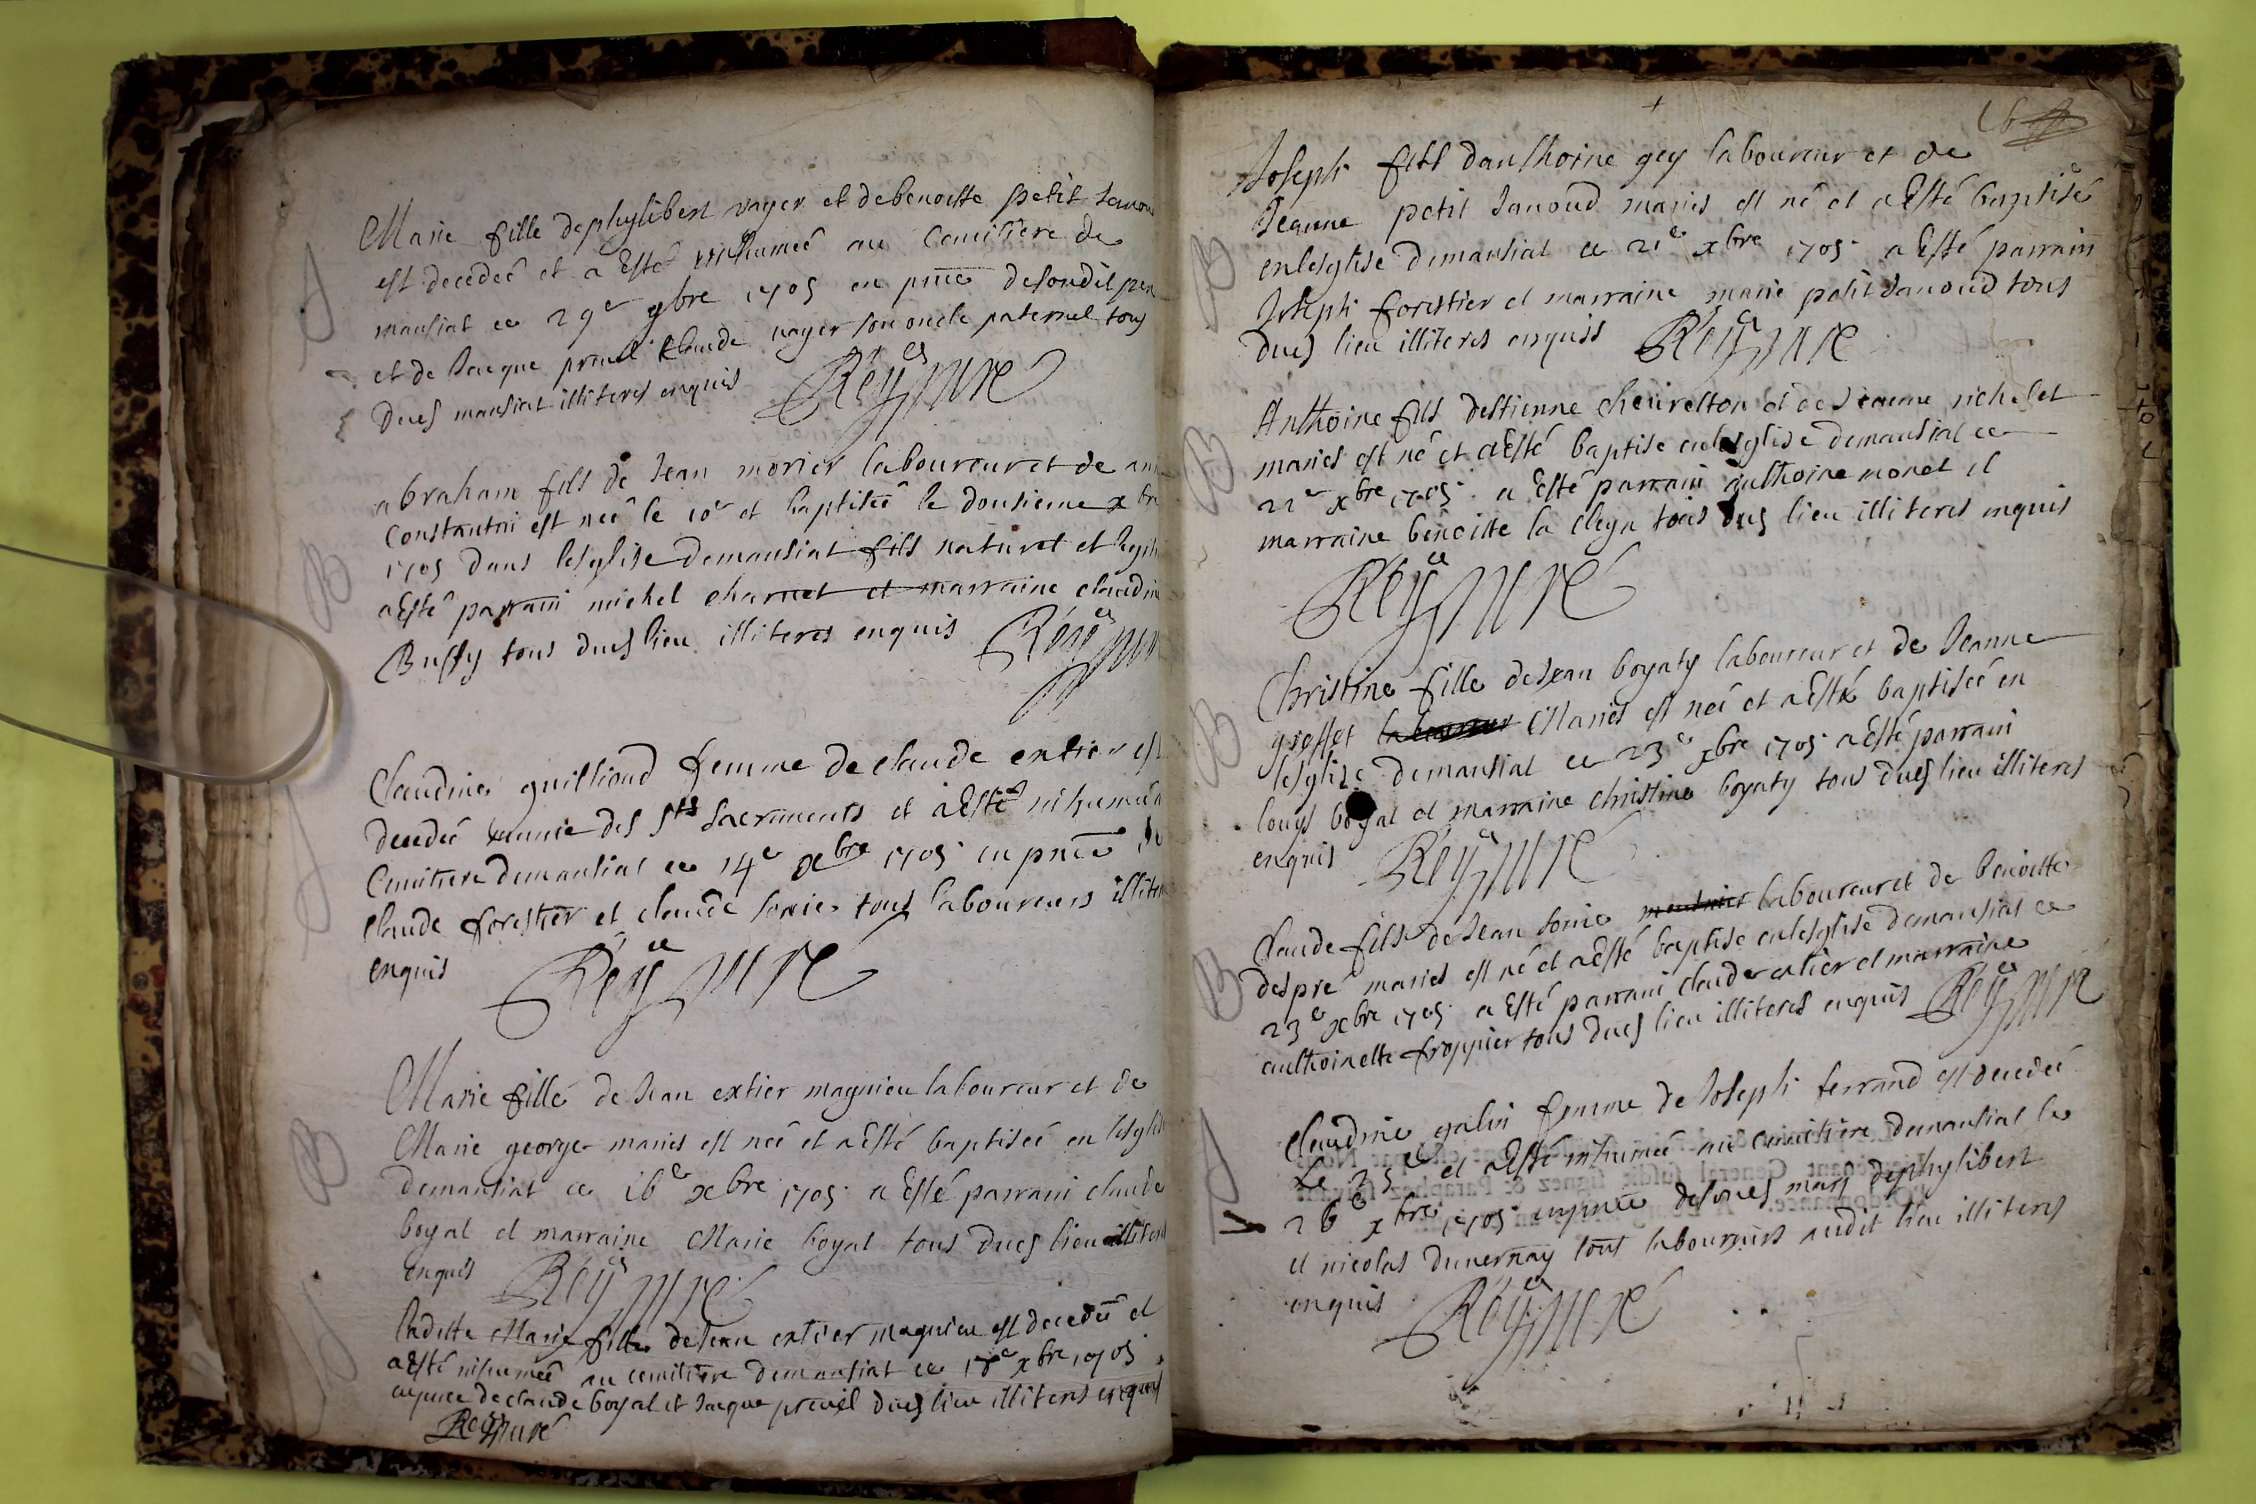 Marie fille dephylibert voyer et debenoitte petit Janou
est decedeé et a esté inhumeé au Cemitière de
mansiat ce 29e 9bre 1705 en pnce desondit per
et de Jacque preuel Claude voyer son oncle paternel tous
dues mansiat illiteres enquis Réy curé
abraham fils de Jean morier laboureur et de an
Constantin est neé le 10e et baptiseé le dousieme xbre
1705 dans lesglise demansiat fils naturel et legit
a esté parrain michel charnet et marraine claudin
Buffy tous dues lieu illiteres enquis Réy cur
Claudine guilliond femme de claude extier est
decedeé munie des Sts Sacrements et a esté inhumeé a
Cemitiere demansiat ce 14e xbre 1705 en pnce de
claude forestier et claude sonie tous laboureurs illiter
enquis Réy curé
Marie fille de Jean extier magnien laboureur et de
Marie george mariés est neé et a esté baptiseé en lesglis
demansiat ce 16e xbre 1705 a esté parrain claude
boyat et marraine Marie boyat tous dues lieu illiteres
enquis Réy curé
Laditte Marie fille de Jean extier magnien est decedeé et
a esté inhumeé au cemitière demansiat ce 18e xbre 1705
enpnce de claude boyat et Jacque preuel dues lieu illiteres enquis
Réy curé
16
Joseph fils danthoine gey laboureur et de
Jeanne petit Janoud mariés est né et a esté baptisé
enlesglise demansiat ce 21e xbre 1705 a esté parrain
Joseph forestier et marraine marie petit Janoud tous
dues lieu illiteres enquis Réy curé
Anthoine fils destienne cheurelton et de Jeanne richelet
mariés est né et a esté baptise enlesglise demansiat ce
22e xbre 1705 a esté parrain anthoine monet et
marraine benoitte la cleya tous dues lieu illiteres enquis
Réy curé
Christine fille deJean boyaty laboureur et de Jeanne
greffet laboureur Mariés est neé et a esté baptiseé en
lesglise demansiat ce 23e xbre 1705 a esté parrain
louys boyat et marraine christine boyaty tous dues lieu illiteres
enquis Réy curé
Claude fils de Jean sonie laboureur et de benoitte
despré mariés est né et a esté baptise enlesglise demansiat ce
23e xbre 1705 a esté parrain claude extier et marraine
anthoinette froppier tous dues lieu illiteres enquis Réy curé
Claudine galin femme de Joseph ferrand est decedeé
Le 25e et a esté inhumeé au cemitière demansiat le
26e xbre 1705 enpnce desones mary dephylibert
et nicolas duuernay tous laboureurs audit lieu illiteres
enquis Réy curé